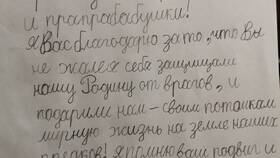 и прапрабабушки!
Я Вас благодарю за то, что Вы
не жалея себя защищали
нашу Родину от врагов, и
подарили нам - своим потомкам
мирную жизнь на земле наших
предков! Я помню ваш подвиг и